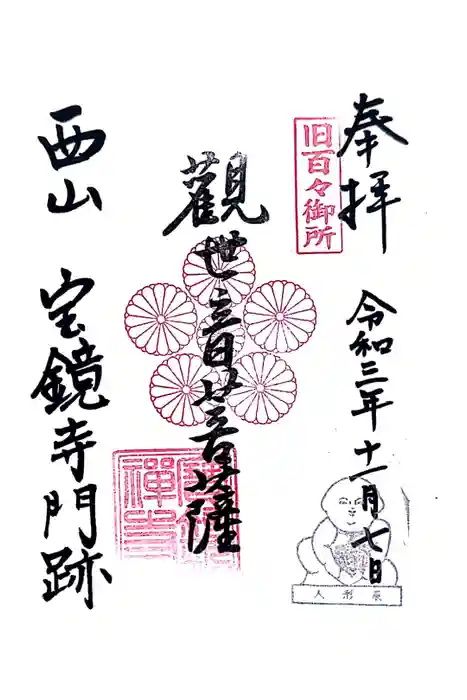 奉拝
旧百々御所
令和三年十一月七日
人形展
觀世音菩薩
西山 宝鏡寺門跡